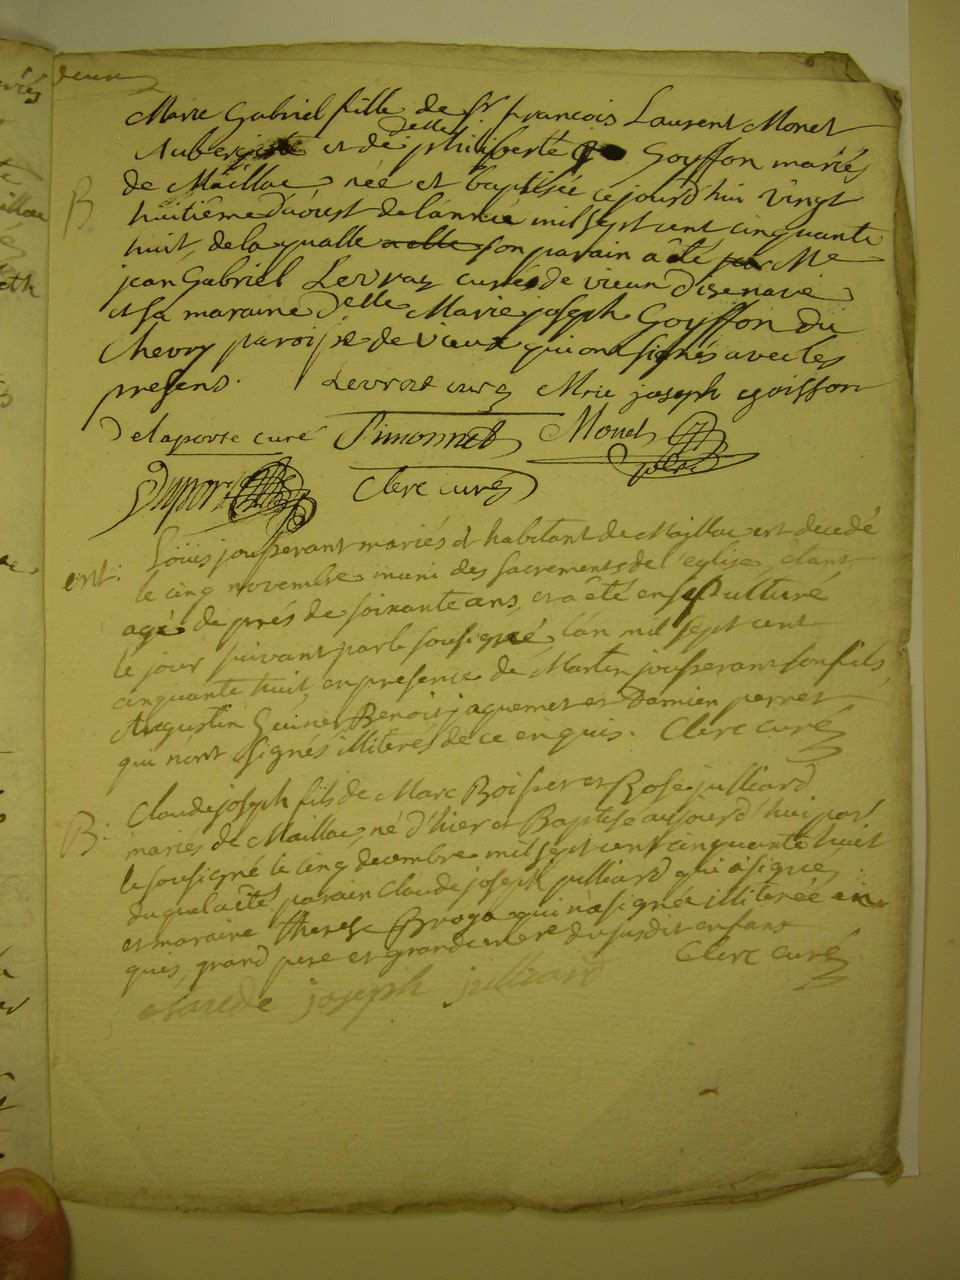 deux
Marie Gabriel fille de Sr françois Laurent Monet
Aubergiste et de delle philiberte Goyffon mariés
B. de Maillac, née et baptisée cejourd'hui vingt
huitième d'aoust de l'année mil sept cent cinquante
huit, de la qualle son parain a été Me
jean Gabriel Levraz curé de vieux d'izenave
et sa maraine delle Marie joseph Goyffon du
Chevry paroisse de vieux qui ont signés avec les
presens. Levrat curé Mrie joseph goiffon
Delaporte curé Simonnet Monet
père
Duport Clerc curé
ent: Loüis jousserant mariés et habitant de Maillac est decedé
le cinq novembre muni des sacrements de l'eglise, etant
agé de prés de soixante ans, et a êté ensepulturé
le jour suivant par le sousigné, l'an mil sept cent
cinquante huit, en presence de Martin jousserant son fils,
Augustin Guinet Benoit jaquemet et Damien perret
qui n'ont signés illiterés de ce enquis. Clerc curé
B: Claude joseph fils de Marc Boisset et Rose julliard
mariés de Maillac, né d'hier et Baptise aujourd'hui par
le sousigné le cinq decembre mil sept cent cinquante huit
duquel a êté parain Claude joseph julliard qui a signé
et maraine therese Broya qui n'a signé illiterée en
quis, grand pere et grande mere du susdit enfant
Clerc curé
claude joseph julliard